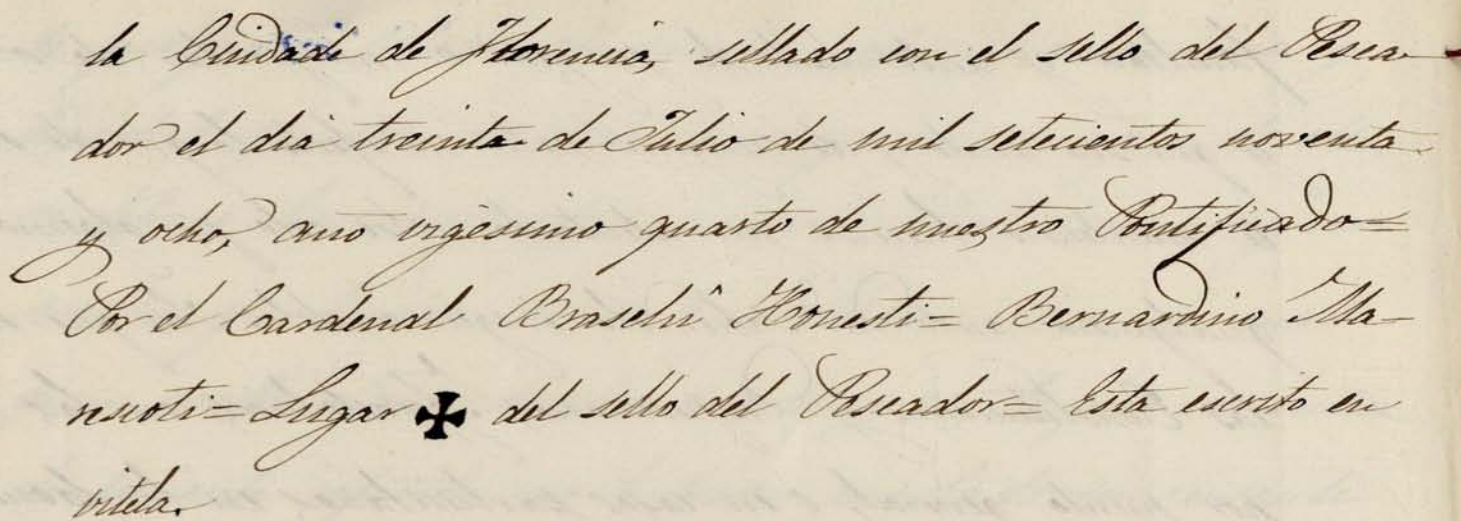 la Ciudad de Florencia, sellado con el sello del Pesca-
dor el dia treinta de Julio de mil setecientos noventa
y ocho, año vigesimo quarto de nuestro Pontificado =
Por el Cardenal Braschi Honesti = Bernardino Ma-
rescoti = Lugar ✠ del sello del Pescador = Esta escrito en
vitela.